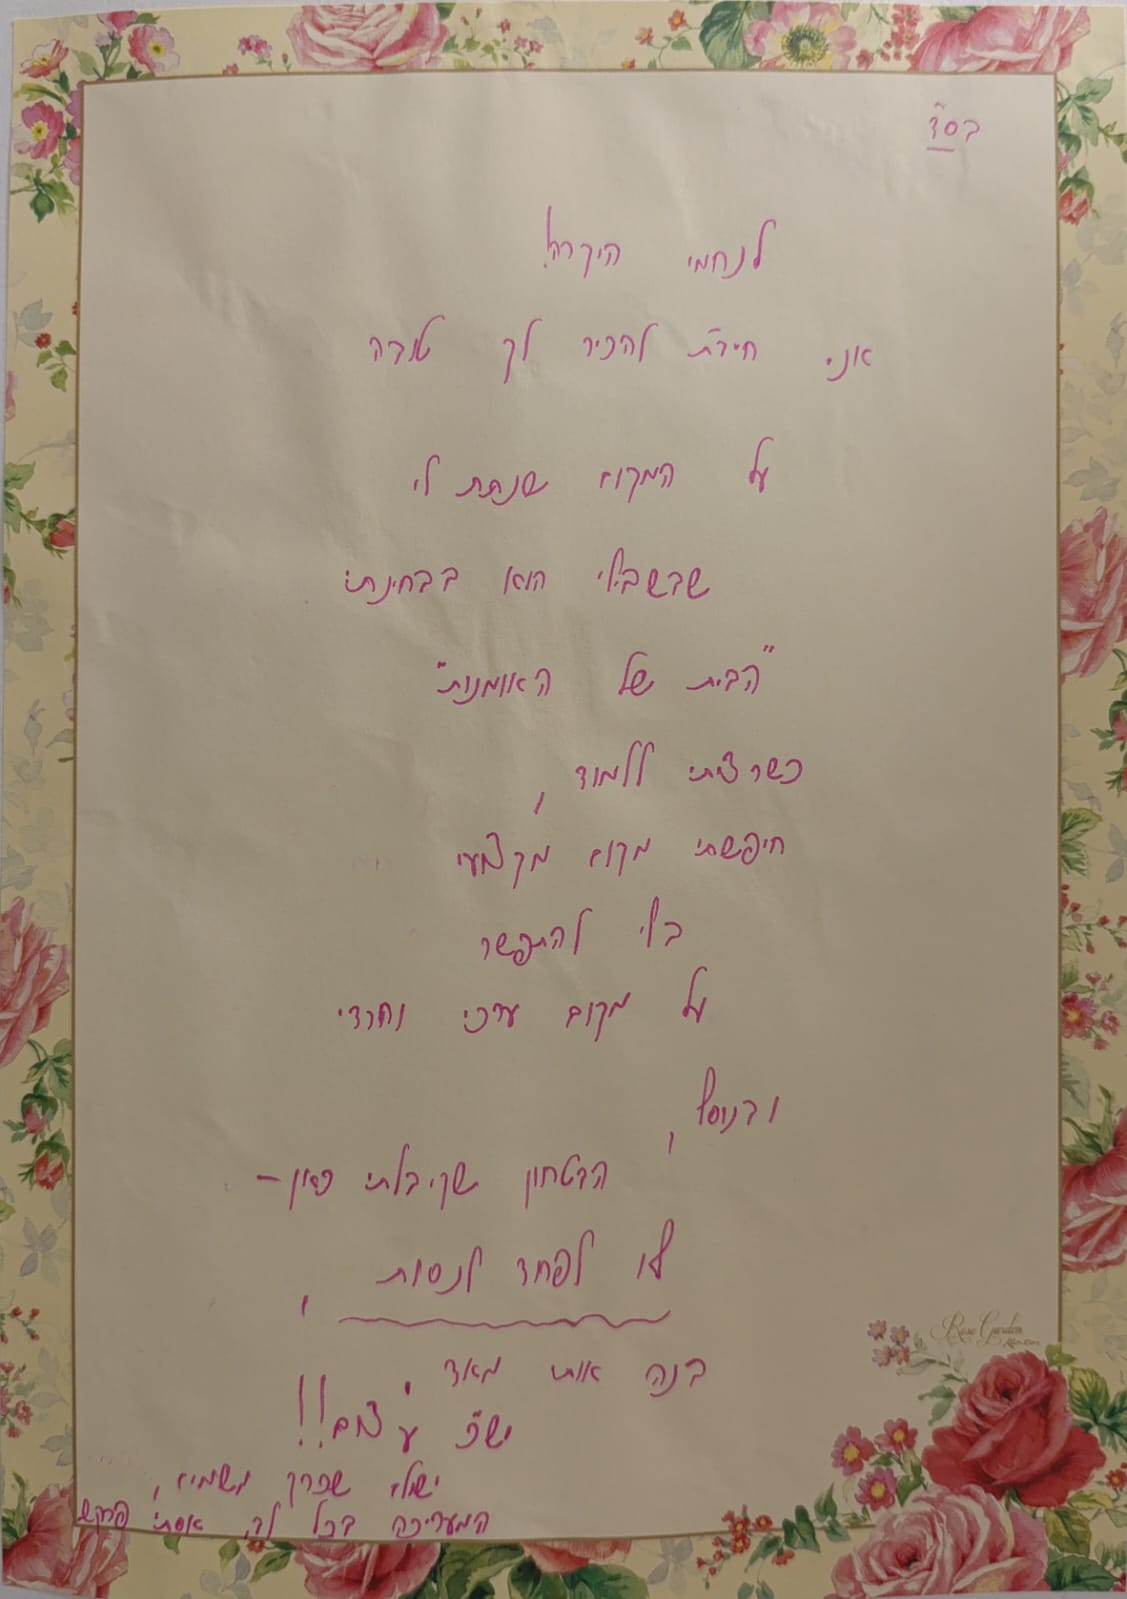 בס"ד
לנחמי היקרה!
אני חייבת להכיר לך טובה
על המקום שנתת לי
שבשבילי הוא בבחינת:
"הבית של האומנות"
כשרציתי ללמוד,
חיפשתי מקום מקצועי
בלי להתפשר
על מקום ערכי וחרדי
ובנוסף,
הבטחון שקיבלתי כאן -
לא לפחד לנסות,
בנה אותי מאד,
יש"כ עצום!!
ישלם שכרך משמים,
המעריכה בכל לב, אסתי
Rose Garden